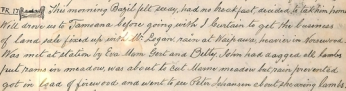 FR. 17 This morning Basil felt sway, had no breakfast decided to take him home
Will drove us to Tamoana before going with J. Curtain to get the business
of land sale fixed up with Mr Logan, rain at Waipawa, heavier in Norsewood
Was met at station by Eva Mavis Gert and Betty, John had dagged all lambs
put rams in meadow, was about to cut Mavis meadow but rain prevented
got in load of firewood and went to see Peter Johansen about shearing lambs.